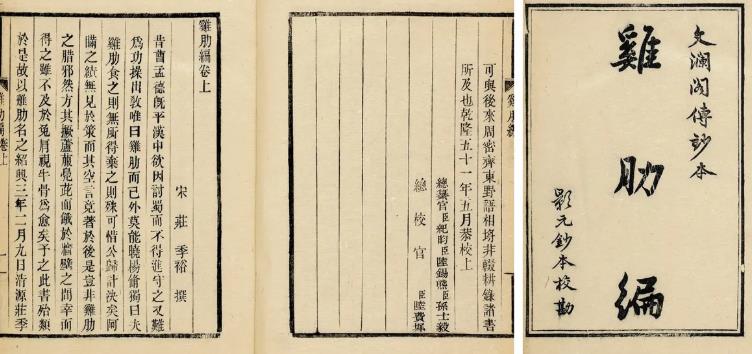 文瀾閣傳鈔本
雞肋編
影元鈔本校勘
可與後來周密齊東野語相埒非輟耕錄諸書
所及也乾隆五十一年五月恭校上
總纂官臣紀昀臣陸錫熊臣孫士毅
總校官臣陸費墀
雞肋編卷上
宋莊季裕撰
昔曹孟德既平漢中欲因討蜀而不得進守之又難
為功操出教唯曰雞肋而已外莫能曉楊脩獨曰夫
雞肋食之則無所得棄之則殊可惜公歸計決矣阿
瞞之績無見於策而其空言竟著於後是豈非雞肋
之腊邪然方其撅蘆菔鳧茈而餓於牆壁之間幸而
得之雖不及於兔肩視牛骨為愈矣予之此書殆類
於是故以雞肋名之紹興三年二月九日清源莊季
雞肋編卷上